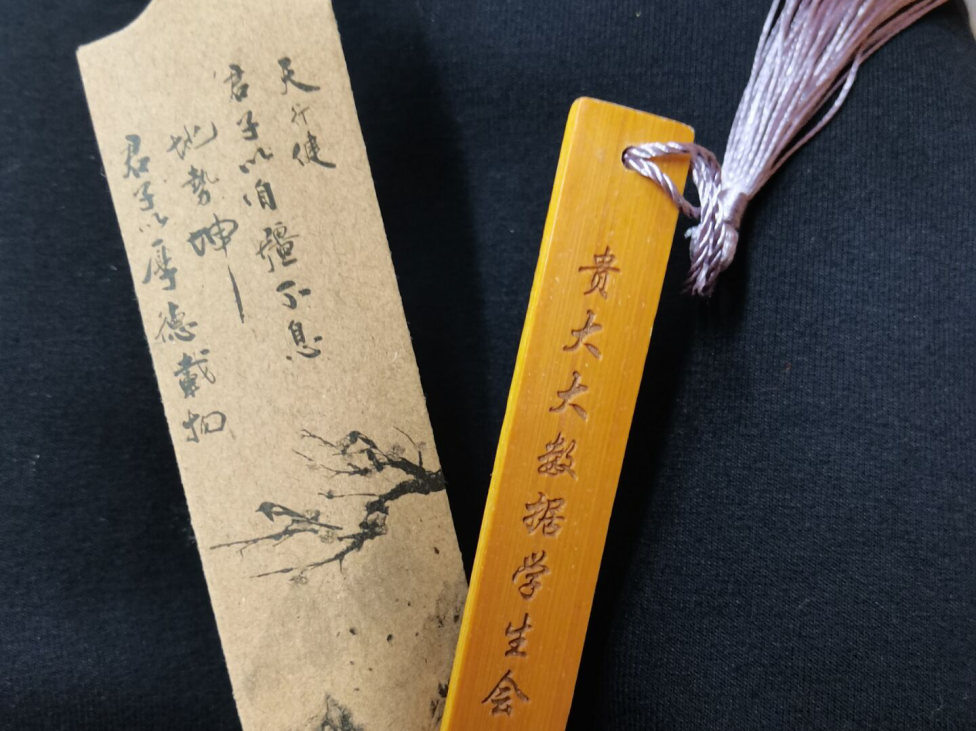 天行健
君子以自彊不息
地勢坤
君子以厚德載物
贵大大数据学生会